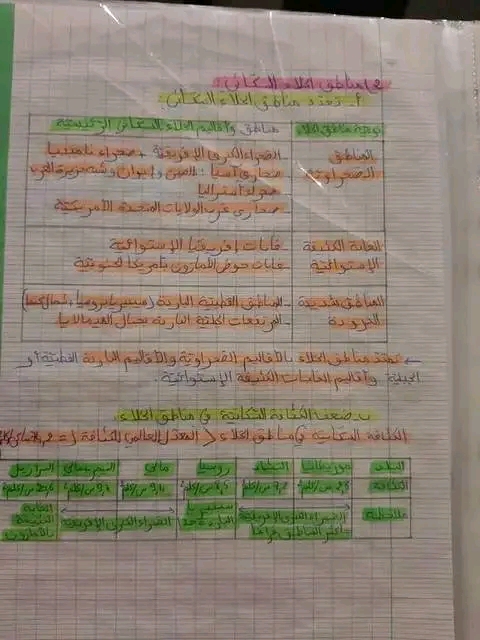 2) مناطق الخلاء السكاني:
أ ـ تعدد مناطق الخلاء السكاني:
نوعية مناطق الخلاء
مناطق وأقاليم الخلاء السكاني الرئيسية
المناطق الصحراوية
الصحراء الكبرى الإفريقية + صحراء ناميبيا
صحاري آسيا: الصين وإيران وشبه جزيرة العرب
صحراء أستراليا
صحاري غرب الولايات المتحدة الأمريكية
الغابة الكثيفة الإستوائية
ـ غابات إفريقيا الإستوائية
ـ غابات حوض الأمازون بأمريكا الجنوبية
المناطق شديدة البرودة
ـ المناطق القطبية الباردة
ـ المرتفعات الجبلية الباردة بجبال الهيمالايا
تمتد مناطق الخلاء بالأقاليم الصحراوية والأقاليم الباردة القطبية أو
الجبلية وأقاليم الغابات الكثيفة الإستوائية.
ب ـ ضعف الكثافة السكانية في مناطق الخلاء:
الكثافة السكانية في مناطق الخلاء < المعدل العالمي للكثافة
البلد
موريطانيا
التشاد
روسيا
مالي
النيجر
البرازيل
الكثافة
ملاحظة
الصحراء الكبرى الإفريقية
أكثر المناطق فراغا
سيبيريا
الباردة جدا
الصحراء الكبرى الإفريقية
الغابة
الكثيفة
بالأمازون